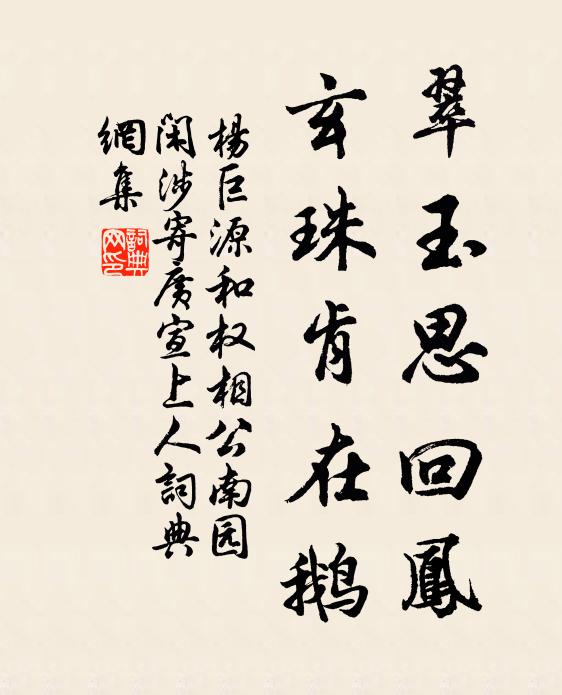 翠玉思回鳳
玄珠肯在鹅
楊巨源和权相公南园
闲涉寄廣宣上人詞典
網集
詞典网印